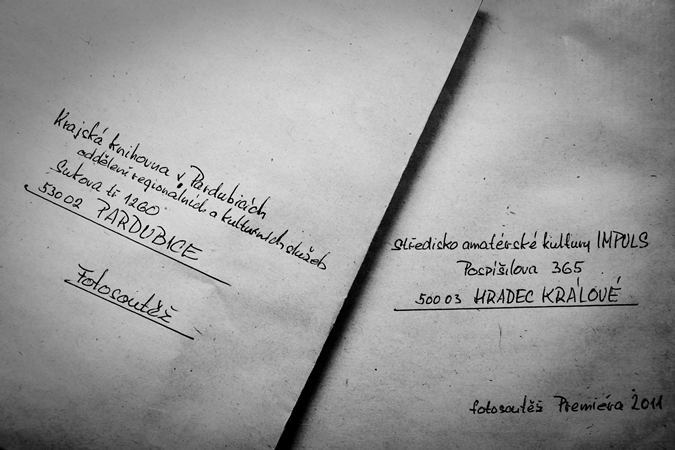 Krajská knihovna v Pardubicích
oddělení regionálních a kulturních služeb
Sukova tř 1260
53002 PARDUBICE
Fotosoutěž
Středisko amatérské kultury IMPULS
Pospíšilova 365
50003 HRADEC KRÁLOVÉ
fotosoutěž Premiéra 2011